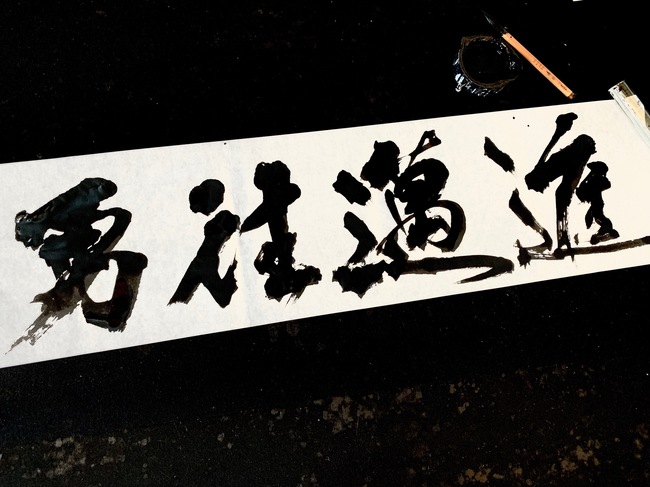 勇往邁進